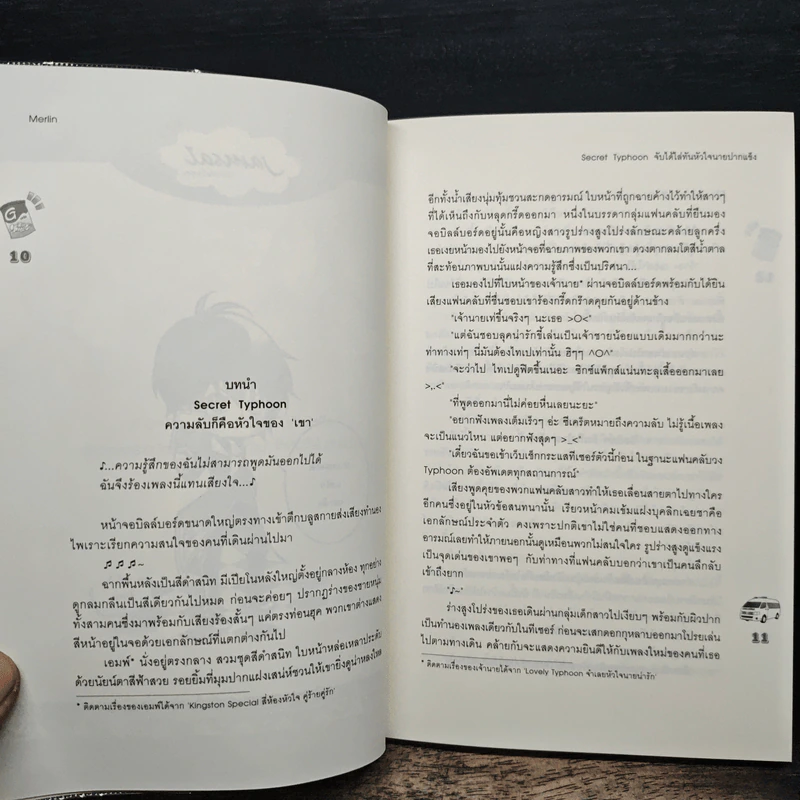 Merlin
jamsai
10
บทนำ
Secret Typhoon
ความลับก็คือหัวใจของ 'เขา'
♪...ความรู้สึกของฉันไม่สามารถพูดมันออกไปได้
ฉันจึงร้องเพลงนี้แทนเสียงใจ...♪
หน้าจอบิลล์บอร์ดขนาดใหญ่ตรงทางเข้าตึกบลูสกายส่งเสียงทำนอง
ไพเราะเรียกความสนใจของคนที่เดินผ่านไปมา
♬ ♬ ♬~
ฉากพื้นหลังเป็นสีดำสนิท มีเปียโนหลังใหญ่ตั้งอยู่กลางห้อง ทุกอย่าง
ดูกลมกลืนเป็นสีเดียวกันไปหมด ก่อนจะค่อยๆ ปรากฏร่างของชายหนุ่ม
ทั้งสามคนซึ่งมาพร้อมกับเสียงร้องสั้นๆ แค่ตรงท่อนฮุค พวกเขาต่างแสดง
สีหน้าอยู่ในจอด้วยเอกลักษณ์ที่แตกต่างกันไป
เอมพ์* นั่งอยู่ตรงกลาง สวมชุดสีดำสนิท ใบหน้าหล่อเหลาประดับ
ด้วยนัยน์ตาสีฟ้าสวย รอยยิ้มที่มุมปากแฝงเสน่ห์ชวนให้เขายิ่งดูน่าหลงใหล
* ติดตามเรื่องของเอมพ์ได้จาก 'Kingston Special สี่ห้องหัวใจ คู่ร้ายคู่รัก'
Secret Typhoon จับได้ไล่ทันหัวใจนายปากแข็ง
อีกทั้งน้ำเสียงนุ่มทุ้มชวนสะกดอารมณ์ ใบหน้าที่ถูกฉายค้างไว้ทำให้สาวๆ
ที่ได้เห็นถึงกับหลุดกรี๊ดออกมา หนึ่งในบรรดากลุ่มแฟนคลับที่ยืนมอง
จอบิลล์บอร์ดอยู่นั้นคือหญิงสาวรูปร่างสูงโปร่งลักษณะคล้ายลูกครึ่ง
เธอเงยหน้ามองไปยังหน้าจอที่ฉายภาพของพวกเขา ดวงตากลมโตสีน้ำตาล
ที่สะท้อนภาพบนนั้นแฝงความรู้สึกซึ่งเป็นปริศนา...
เธอมองไปที่ใบหน้าของเจ้านาย* ผ่านจอบิลล์บอร์ดพร้อมกับได้ยิน
เสียงแฟนคลับที่ชื่นชอบเขาร้องกรี๊ดกร๊าดคุยกันอยู่ด้านข้าง
"เจ้านายเท่ขึ้นจริงๆ นะเธอ >O<"
"แต่ฉันชอบลุคน่ารักขี้เล่นเป็นเจ้าชายน้อยแบบเดิมมากกว่านะ
ท่าทางเท่ๆ นี่มันต้องไทเปเท่านั้น ฮิๆๆ ^O^"
"จะว่าไป ไทเปดูฟิตขึ้นเนอะ ซิกซ์แพ็กส์แน่นทะลุเสื้อออกมาเลย
>,.<"
"ที่พูดออกมานี่ไม่ค่อยหื่นเลยนะยะ"
"อยากฟังเพลงเต็มเร็วๆ อ่ะ ซีเครีตหมายถึงความลับ ไม่รู้เนื้อเพลง
จะเป็นแนวไหน แต่อยากฟังสุดๆ >_<"
"เดี๋ยวฉันขอเข้าเว็บเช็กกระแสทีเซอร์ตัวนี้ก่อน ในฐานะแฟนคลับวง
Typhoon ต้องอัพเดตทุกสถานการณ์"
เสียงพูดคุยของพวกแฟนคลับสาวทำให้เธอเลื่อนสายตาไปทางใคร
อีกคนซึ่งอยู่ในหัวข้อสนทนานั้น เรียวหน้าคมเข้มแฝงบุคลิกเฉยชาคือ
เอกลักษณ์ประจำตัว คงเพราะปกติเขาไม่ใช่คนที่ชอบแสดงออกทาง
อารมณ์เลยทำให้ภายนอกนั้นดูเหมือนพวกไม่สนใจใคร รูปร่างสูงดูแข็งแรง
เป็นจุดเด่นของเขาพอๆ กับท่าทางที่แฟนคลับบอกว่าเขาเป็นคนลึกลับ
เข้าถึงยาก
"♪~"
ร่างสูงโปร่งของเธอเดินผ่านกลุ่มเด็กสาวไปเงียบๆ พร้อมกับผิวปาก
เป็นทำนองเพลงเดียวกับในทีเซอร์ ก่อนจะเสกดอกกุหลาบออกมาโปรยเล่น
ไปตามทางเดิน คล้ายกับจะแสดงความยินดีให้กับเพลงใหม่ของคนที่เธอ
* ติดตามเรื่องของเจ้านายได้จาก 'Lovely Typhoon จำเลยหัวใจนายน่ารัก'
11